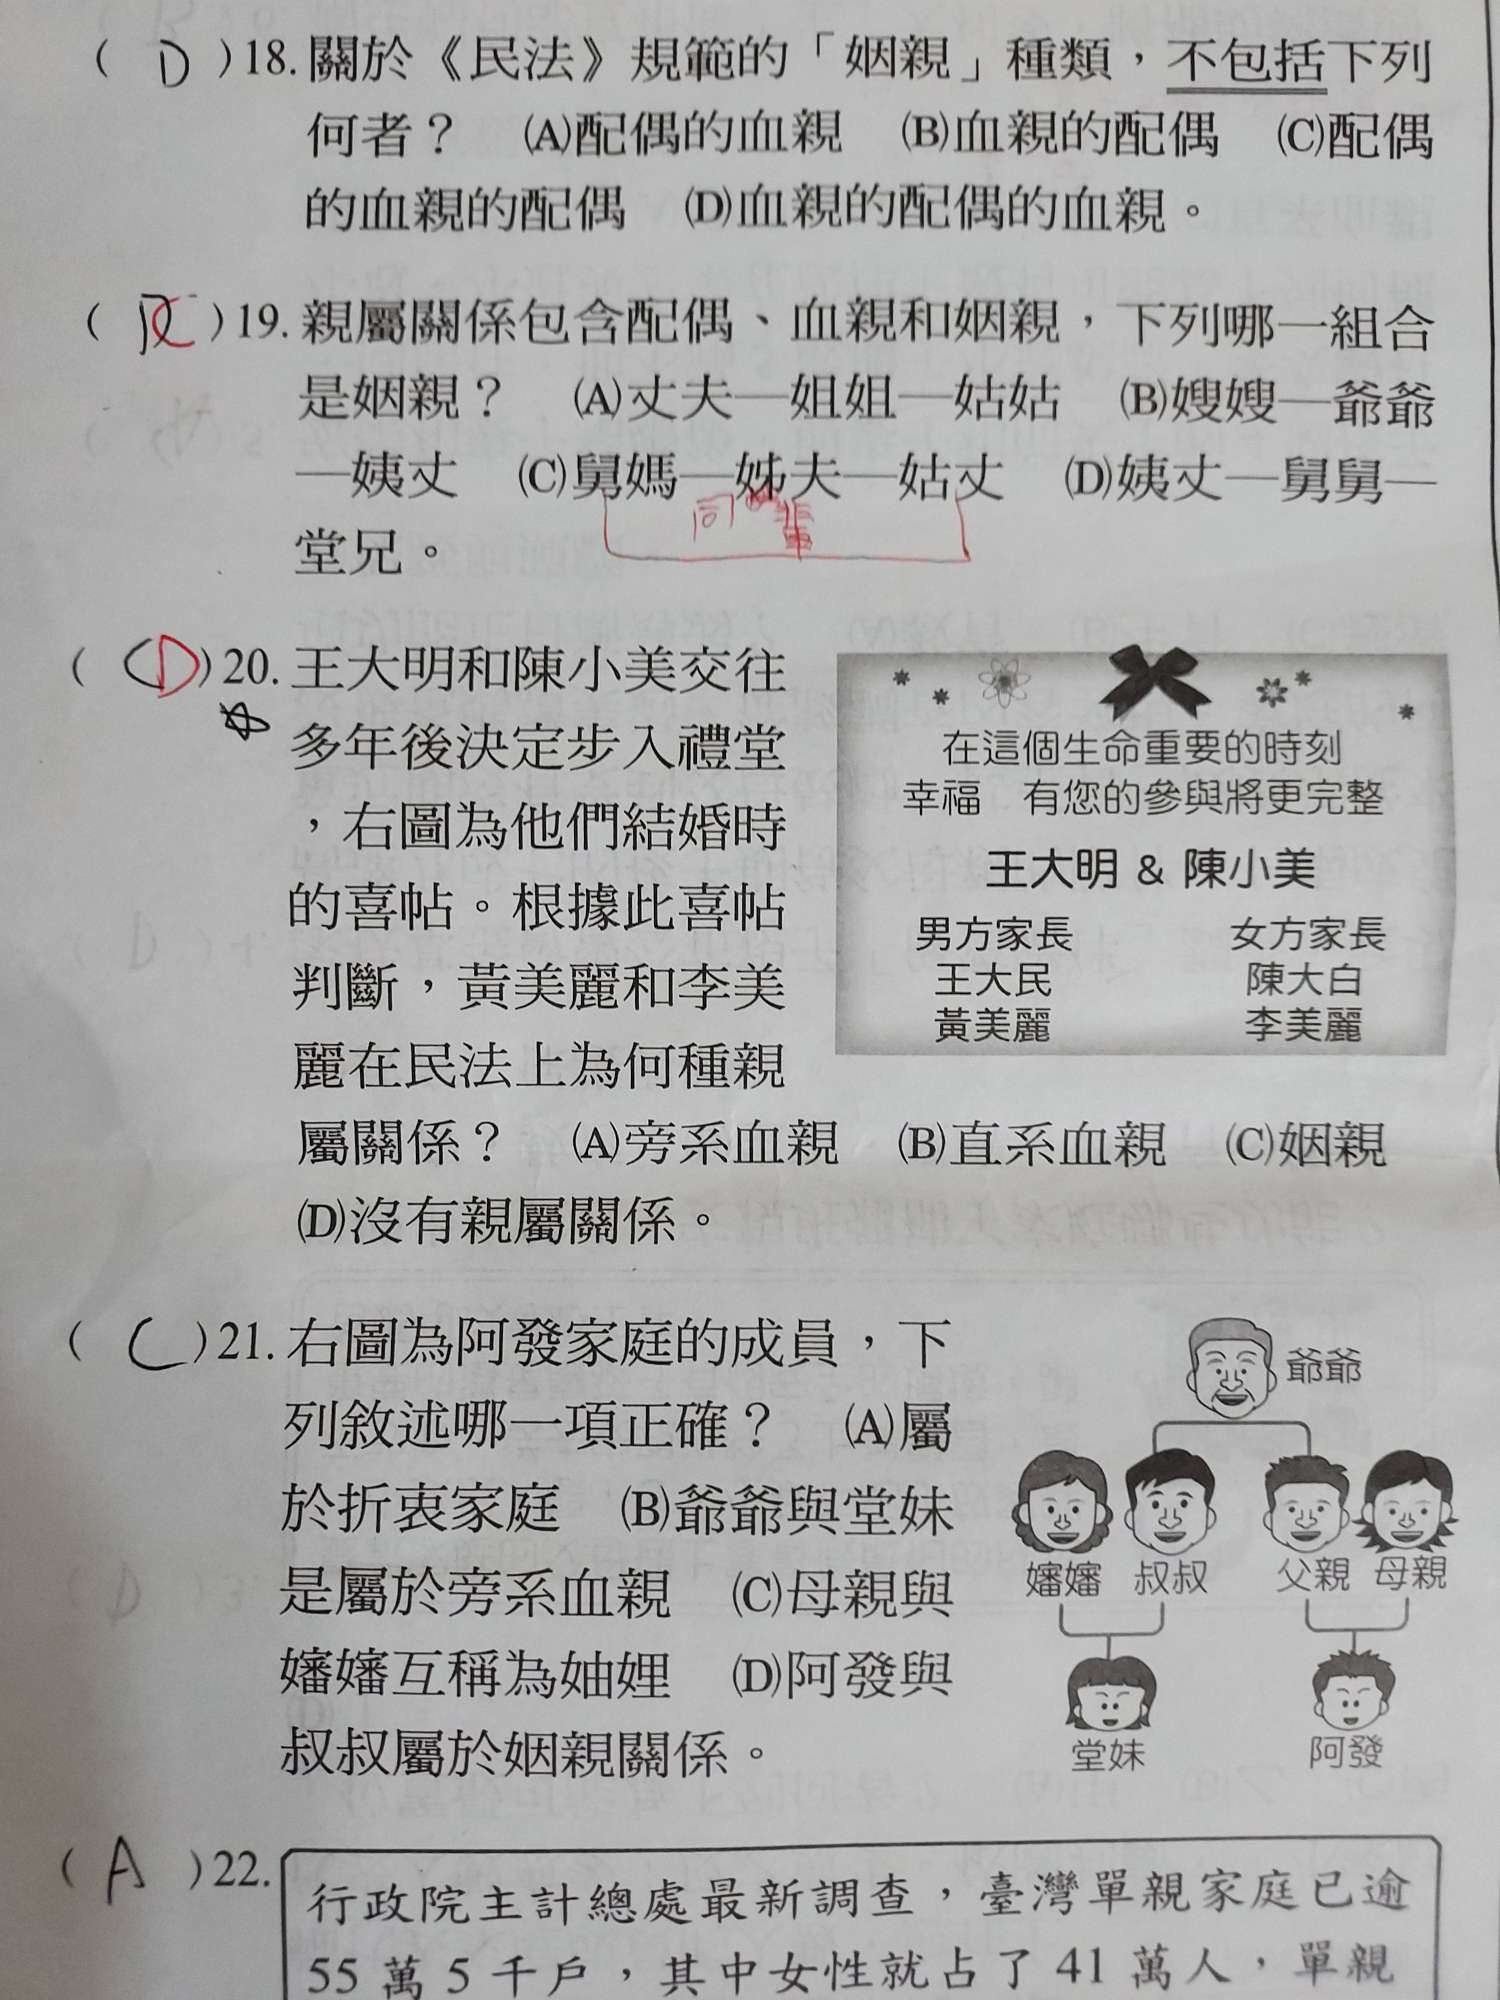 ( D )18.關於《民法》規範的「姻親」種類，不包括下列
何者？ (A)配偶的血親 (B)血親的配偶 (C)配偶
的血親的配偶 (D)血親的配偶的血親。
( C )19.親屬關係包含配偶、血親和姻親，下列哪一組合
是姻親？ (A)丈夫—姐姐—姑姑 (B)嫂嫂—爺爺
—姨丈 (C)舅媽—姊夫—姑丈 (D)姨丈—舅舅—
同
堂兄。
( C D )20.王大明和陳小美交往
多年後決定步入禮堂
，右圖為他們結婚時
的喜帖。根據此喜帖
判斷，黃美麗和李美
麗在民法上為何種親
屬關係？ (A)旁系血親 (B)直系血親 (C)姻親
(D)沒有親屬關係。
在這個生命重要的時刻
幸福 有您的參與將更完整
王大明 & 陳小美
男方家長 女方家長
王大民 陳大白
黃美麗 李美麗
( C )21.右圖為阿發家庭的成員，下
列敘述哪一項正確？ (A)屬
於折衷家庭 (B)爺爺與堂妹
是屬於旁系血親 (C)母親與
嬸嬸互稱為妯娌 (D)阿發與
叔叔屬於姻親關係。
爺爺
嬸嬸 叔叔 父親 母親
堂妹 阿發
( A )22.
行政院主計總處最新調查，臺灣單親家庭已逾
55 萬 5 千戶，其中女性就占了 41 萬人，單親